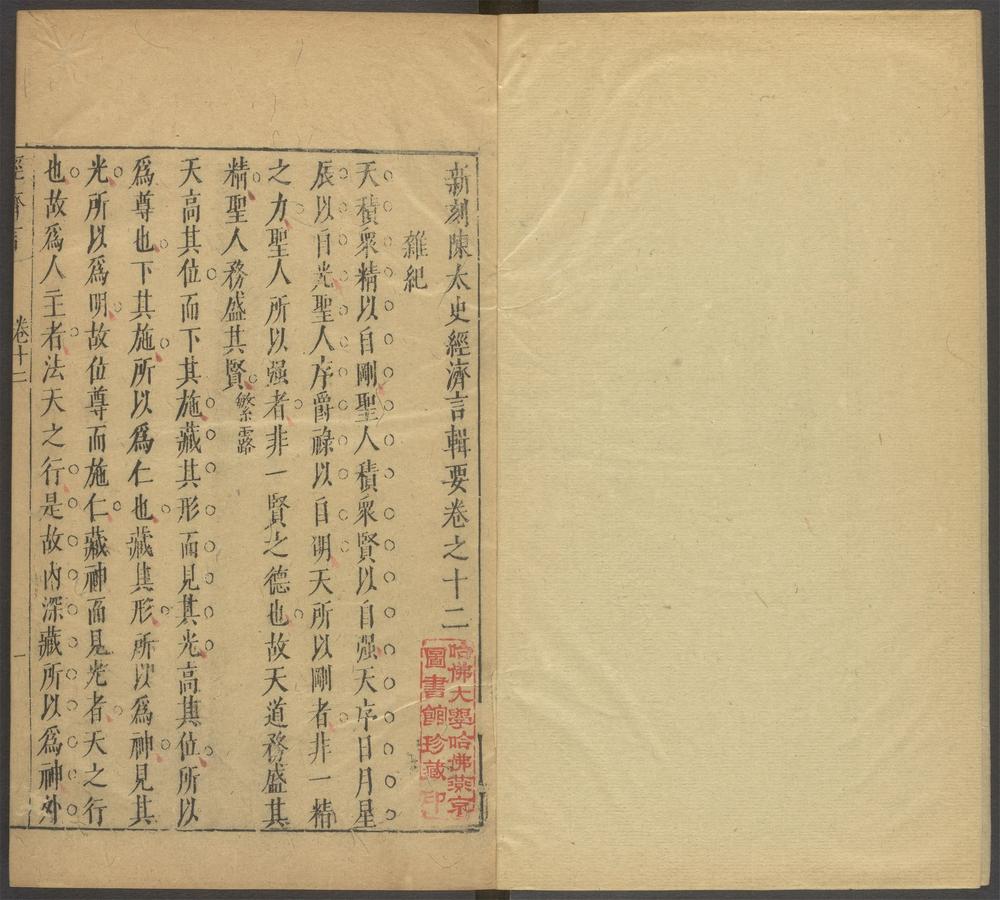 新刻陳太史經濟言輯要卷之十二
雜紀
天積衆精以自剛聖人積衆賢以自强天序日月星
辰以自光聖人序爵祿以自明天所以剛者非一精
之力聖人所以强者非一賢之德也故天道務盛其
精聖人務盛其賢繁露
天高其位而下其施藏其形而見其光高其位所以
爲尊也下其施所以爲仁也藏其形所以爲神見其
光所以爲明故位尊而施仁藏神而見光者天之行
也故爲人主者法天之行是故內深藏所以爲神外
經濟言 卷十二 一
哈佛大學哈佛燕京
圖書館珍藏印